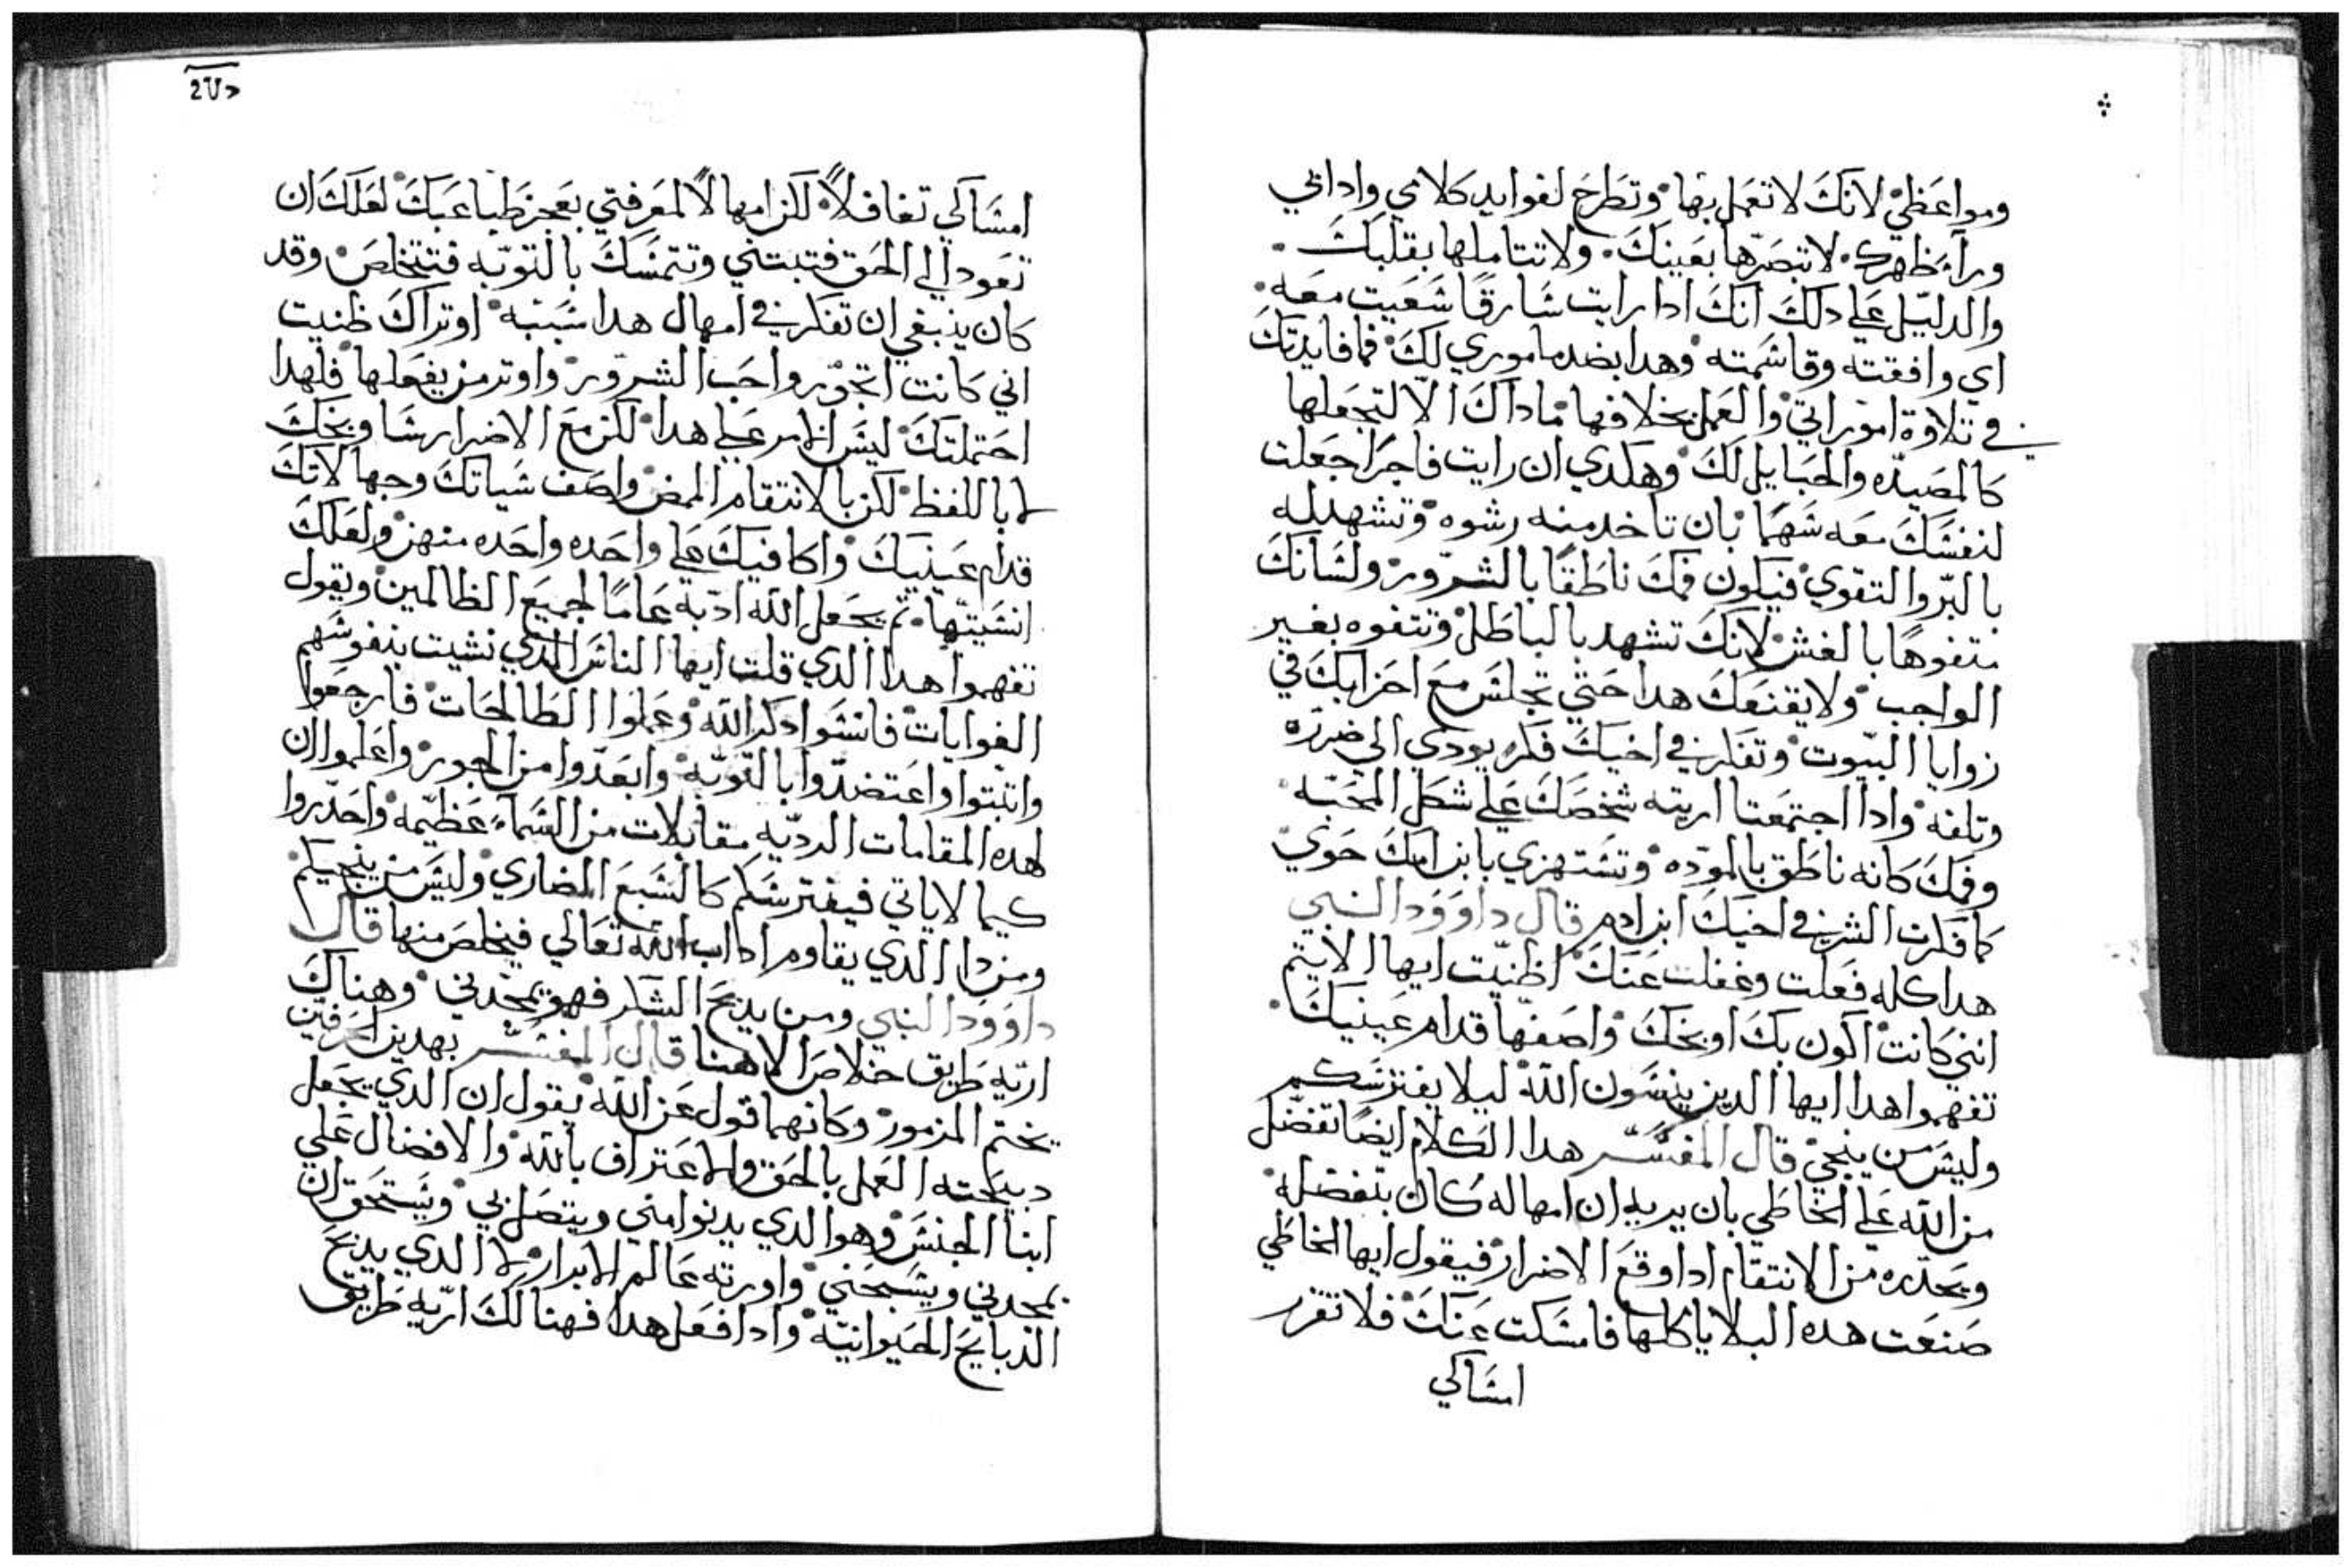 ومواعظي لانك لا تعمل بها وتطرح لفوايد كلامي واداتي
ورآء ظهرك لا تبصرها بعينك ولا تتاملها بقلبك
والدليل علي دلك انك ادا رايت شارقًا شعيت معه
اي وافقته وقاشمته وهدا بضد ماموري لك فما فايدتك
في تلاوة اموراتي والعمل بخلافها ماداك الا لتجعلها
كالمصيده والحبايل لك وهكدي ان رايت فاجرًا جعلت
لنفشك معه شهمًا بان تاخد منه رشوه وتشهد له
بالبر والتقوي فيكون فمك ناطقًا بالشرور ولشانك
متفوهًا بالغش لانك تشهد بالباطل وتتفوه بغير
الواجب ولا يقنعك هدا حتي تجلش مع احزابك في
زوايا البيوت وتفكر في اخيك فكر يودي الي ضرره
وتلفه وادا اجتمعتا اريته شخصك علي شكل المحبه
وفمك كانه ناطق بالموده وتشتهزي بابن امك حوي
كما فكرت الشر في اخيك ابن ادم قال داوود النبي
هدا كله فعلت وغفلت عنك اظنيت ايها الاثيم
انني كانت اكون بك اوبخك واصفها قدام عينيك
تفهموا هدا ايها الدين ينشون الله ليلا يفترشكم
وليش من ينجي قال المفشر هدا الكلام ايضًا تفضل
من الله علي الخاطي بان يريه ان امهاله كان بتفضله
ويحدره من الانتقام ادا وقع الاضرار فيقول ايها الخاطي
صنعت هده البلايا كلها فامشكت عنك فلا تقرر
امشاكي
امشاكي تغافلاً لكن امهالاً لمعرفتي بعجز طباعك لعلك ان
تعود الي الحق فتبتني وتتمشك بالتوبه فتتخلص وقد
كان ينبغي ان تفكر في امهال هدا شببه اوتراك ظنيت
اني كانت اتجوز واحب الشرور واوتر من يفعلها فلهدا
احتملتك ليش الامر علي هدا لكن مع الاضرار شاوبخك
لا باللفظ لكن بالانتقام الممض واصف شياتك وجهالاتك
قدام عينيك واكافيك علي واحده واحده منهن ولعلك
انشيتها ثم يجعل الله ادبه عامًا لجميع الظالمين ويقول
تفهموا هدا الدي قلت ايها الناش الدي نشيت بنفوشهم
الغوايات فانشوا دكر الله وعملوا الطالحات فارجعوا
واثبتوا واعتضدوا بالتوبه وابعدوا من الجور واعلموا ان
لهده المقامات الرديه مقابلات من الشمآء عظيمه واحدروا
كيما لا ياتي فيفترشكم كالشبع الضاري وليش من ينجيكم
ومن دا الدي يقاوم اداب الله تعالي فيخلص منها قال
داوود النبي ومن يدبح الشكر فهو يمجدني وهناك
اريه طريق خلاص الاهنا قال المفشر بهدين الحرفين
يختم المزمور وكانهما قول عن الله يقول ان الدي يجعل
دبيحته العمل بالحق والاعتراف بالله والافضال علي
ابنا الجنش وهو الدي يدنوا مني ويتصل بي ويشتحق ان
يمجدني ويشبحني واورته عالم الابرار لا الدي يدبح
الدبايح الحيوانيه وادا فعل هدا فهنالك اريه طريق